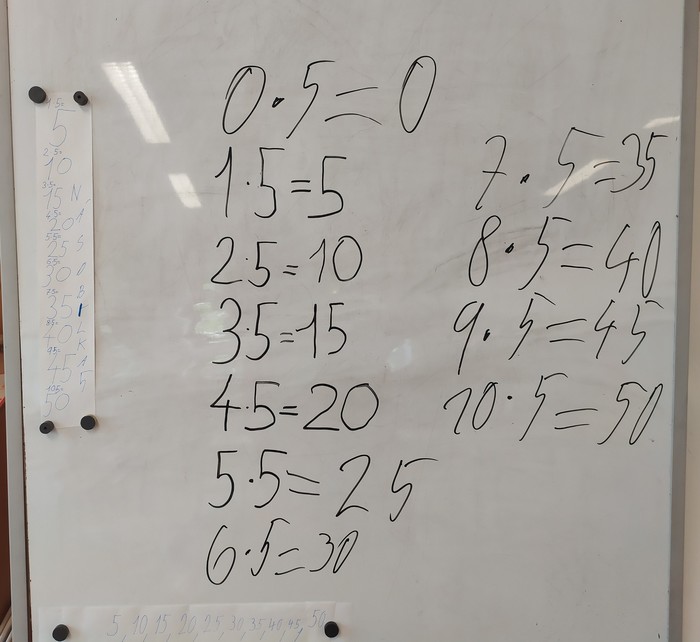 0·5=0
1·5=5
2·5=10
3·5=15
4·5=20
5·5=25
6·5=30
7·5=35
8·5=40
9·5=45
10·5=50
5
10
15
20
25
30
35
40
45
50
NÁSOBILKA 5
5, 10, 15, 20, 25, 30, 35, 40, 45, 50